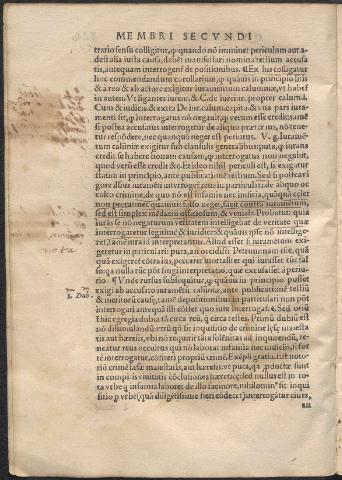 MEMBRI SECVNDI
trario sensu colligitur, ꝙ quando nõ imminet periculum aut a-
dest alia iusta causa, debẽt manifestari nomina testium accusa
tis, antequam interrogent᷑ de positionibus. ¶ Ex his colligatur
hoc commendandum corollarium, ꝙ quãuis in principio iudi
& a reo & ab actore exigitur iuramentum calumniæ, vt habet᷑
in autẽ. Vt litigantes iurent. & C. de iureiur. propter calumã.
Cum & iudicis. & extra De iur. calum. capita. & i. vna pars iura-
menti sit, ꝙ interrogatus nõ negabit, ꝙ verum esse credit: tamẽ
si postea accusatus interrogetur de aliquo præterito, nõ tene-
tur respõdere, nec quanquã neget est periurus. V. g. Iuramẽ-
tum calũniæ exigitur sub clausulis generalibus: puta, ꝙ iurans
credit se habere bonam causam, ꝙ interrogatus non negabit,
quod verũ esse credit &c. Et ideo nihil periculi est, si exigatur
statim in principio, ante publicationẽ testium. Sed si postea vi
gore illius iuramẽti interroget᷑ reus in particulari de aliquo oc
culto crimine, de quo nõ est infamia nec indicia, quãquã celet
non peccat: nec quamuis falso neget, facit contra iuramentum,
sed est simplex mẽdaciũ officiosum, & veniale. Probatur: quia
iurãs se nõ negaturum veritatem intelligebat de veritate quæ
interrogaretur legitimè & iuridicè: & quãuis ipse nõ intellige-
ret, tamẽ iura id interpretantur. Aliud esset si iuramẽtũ exi-
geretur in particulari: puta, an occidisti Petrum: nam tũc, quã
quã exigeret cõtra ius, peccaret mortaliter qui iurasset tũc fal
so: qa nulla tũc põt fingi interpretatio, quæ excusaret à periu-
rio. ¶ Vnde rursus subsequitur, ꝙ quãuis in principio posset
exigi ab accusato iuramẽtũ calũniæ, ante publicationẽ testiũ
& meritorũ causę, tamẽ depositionibus in particulari non põt
interrogari antequã illi cõstet quo iure interrogat᷑. ¶ Sed oriũ
t̃ hîc egregia dubia tã circa reũ, ꝗ̃ circa testes. Primũ dubiũ est
nõ dissimulandũ: vtrũ qñ fit inquisitio de crimine læsæ maiesta
tis aut hæresis, vbi nõ requirit᷑ tãta solẽnitas ad inquirendũ, te-
neatur reus occultus qui nõ laborat infamia nec indiciis, si for
tè interrogatur, cõfiteri propriũ crimẽ. Exẽpli gratia. Est noto-
riũ crimẽ læsæ maiestatis, aut hæresis: vt puta,
in compitis ciuitatis cõclusiones hæreticę: sed nullus est in to
ta vrbe ꝗ infamia laboret de illo facinore, nihilomin᷑ fit inqui
sitio ꝑ vrbẽ (quã diligẽtissimè fieri cõdecet) interrogãtur ciues,
an
1. Dub.
nota